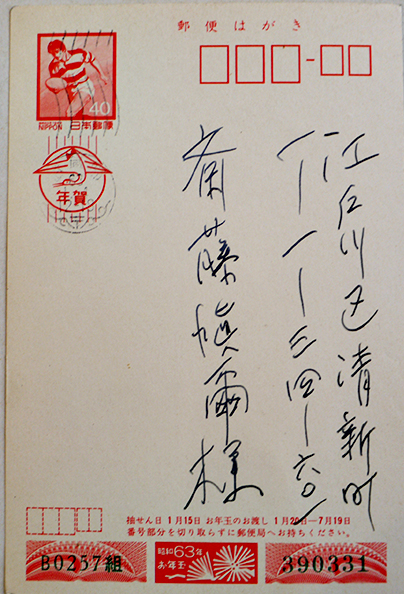 郵便はがき
40
日本郵便
年賀
江戸川区清新町
一-一-三四-六〇
斎藤慎爾様
抽せん日 1月15日 お年玉のお渡し 1月20日─7月19日
番号部分を切り取らずに郵便局へお持ちください。
B0257組
昭和63年
お年玉
390331